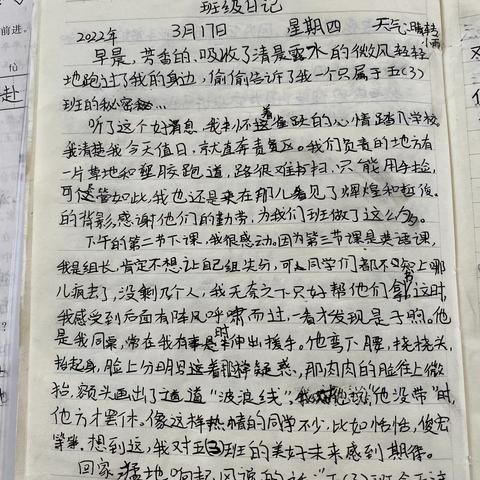 班级日记
2022年 3月17日 星期四 天气:晴转
小雨
早晨,芳香的、吸收了清晨露水的微风轻轻
地跑过了我的身边,偷偷告诉了我一个只属于五(3)
班的秘密…
听了这个好消息,我制不着雀跃的心情踏入学校。
我清楚我今天值日,就直奔责责区。我们负责的地方有
一片草地和塑胶跑道,路很难打扫,只能用手捡,
可尽管如此,我也还是来在那儿看见了辉煌和赵俊
的背影,感谢他们的勤劳,为我们班做了这么多。
下午的第二节下课,我很感动。因为第三节课是英语课,
我是组长,肯定不想让自己组失分,可同学们都不知上哪
儿疯去了,没剩几个人,我无奈之下只好帮他们拿书这时,
我感受到后面有阵风呼啸而过,一看才发现是子煦。他
是我同桌,常在我有事时伸出援手。他弯下腰,挠挠头,
抬起身,脸上分明写着疑惑,那肉肉的脸往上微
抬,额头画出了一道道“波浪线”,我说“他没带”时,
他方才罢休。像这样热情的同学不少,比如恬恬,俊宏
等等。想到这,我对五(3)班的美好未来感到期待。
回家,猛地响起